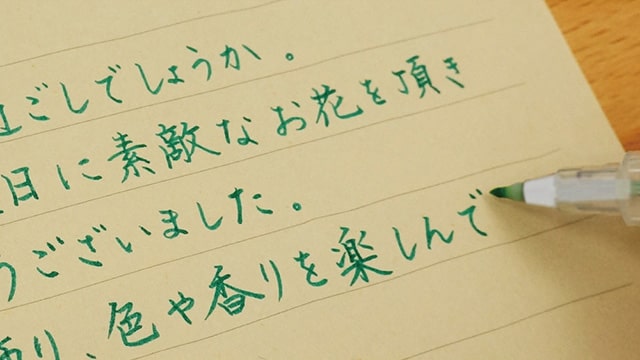 ごしでしょうか。
日に素敵なお花を頂き
うございました。
り、色や香りを楽しんで